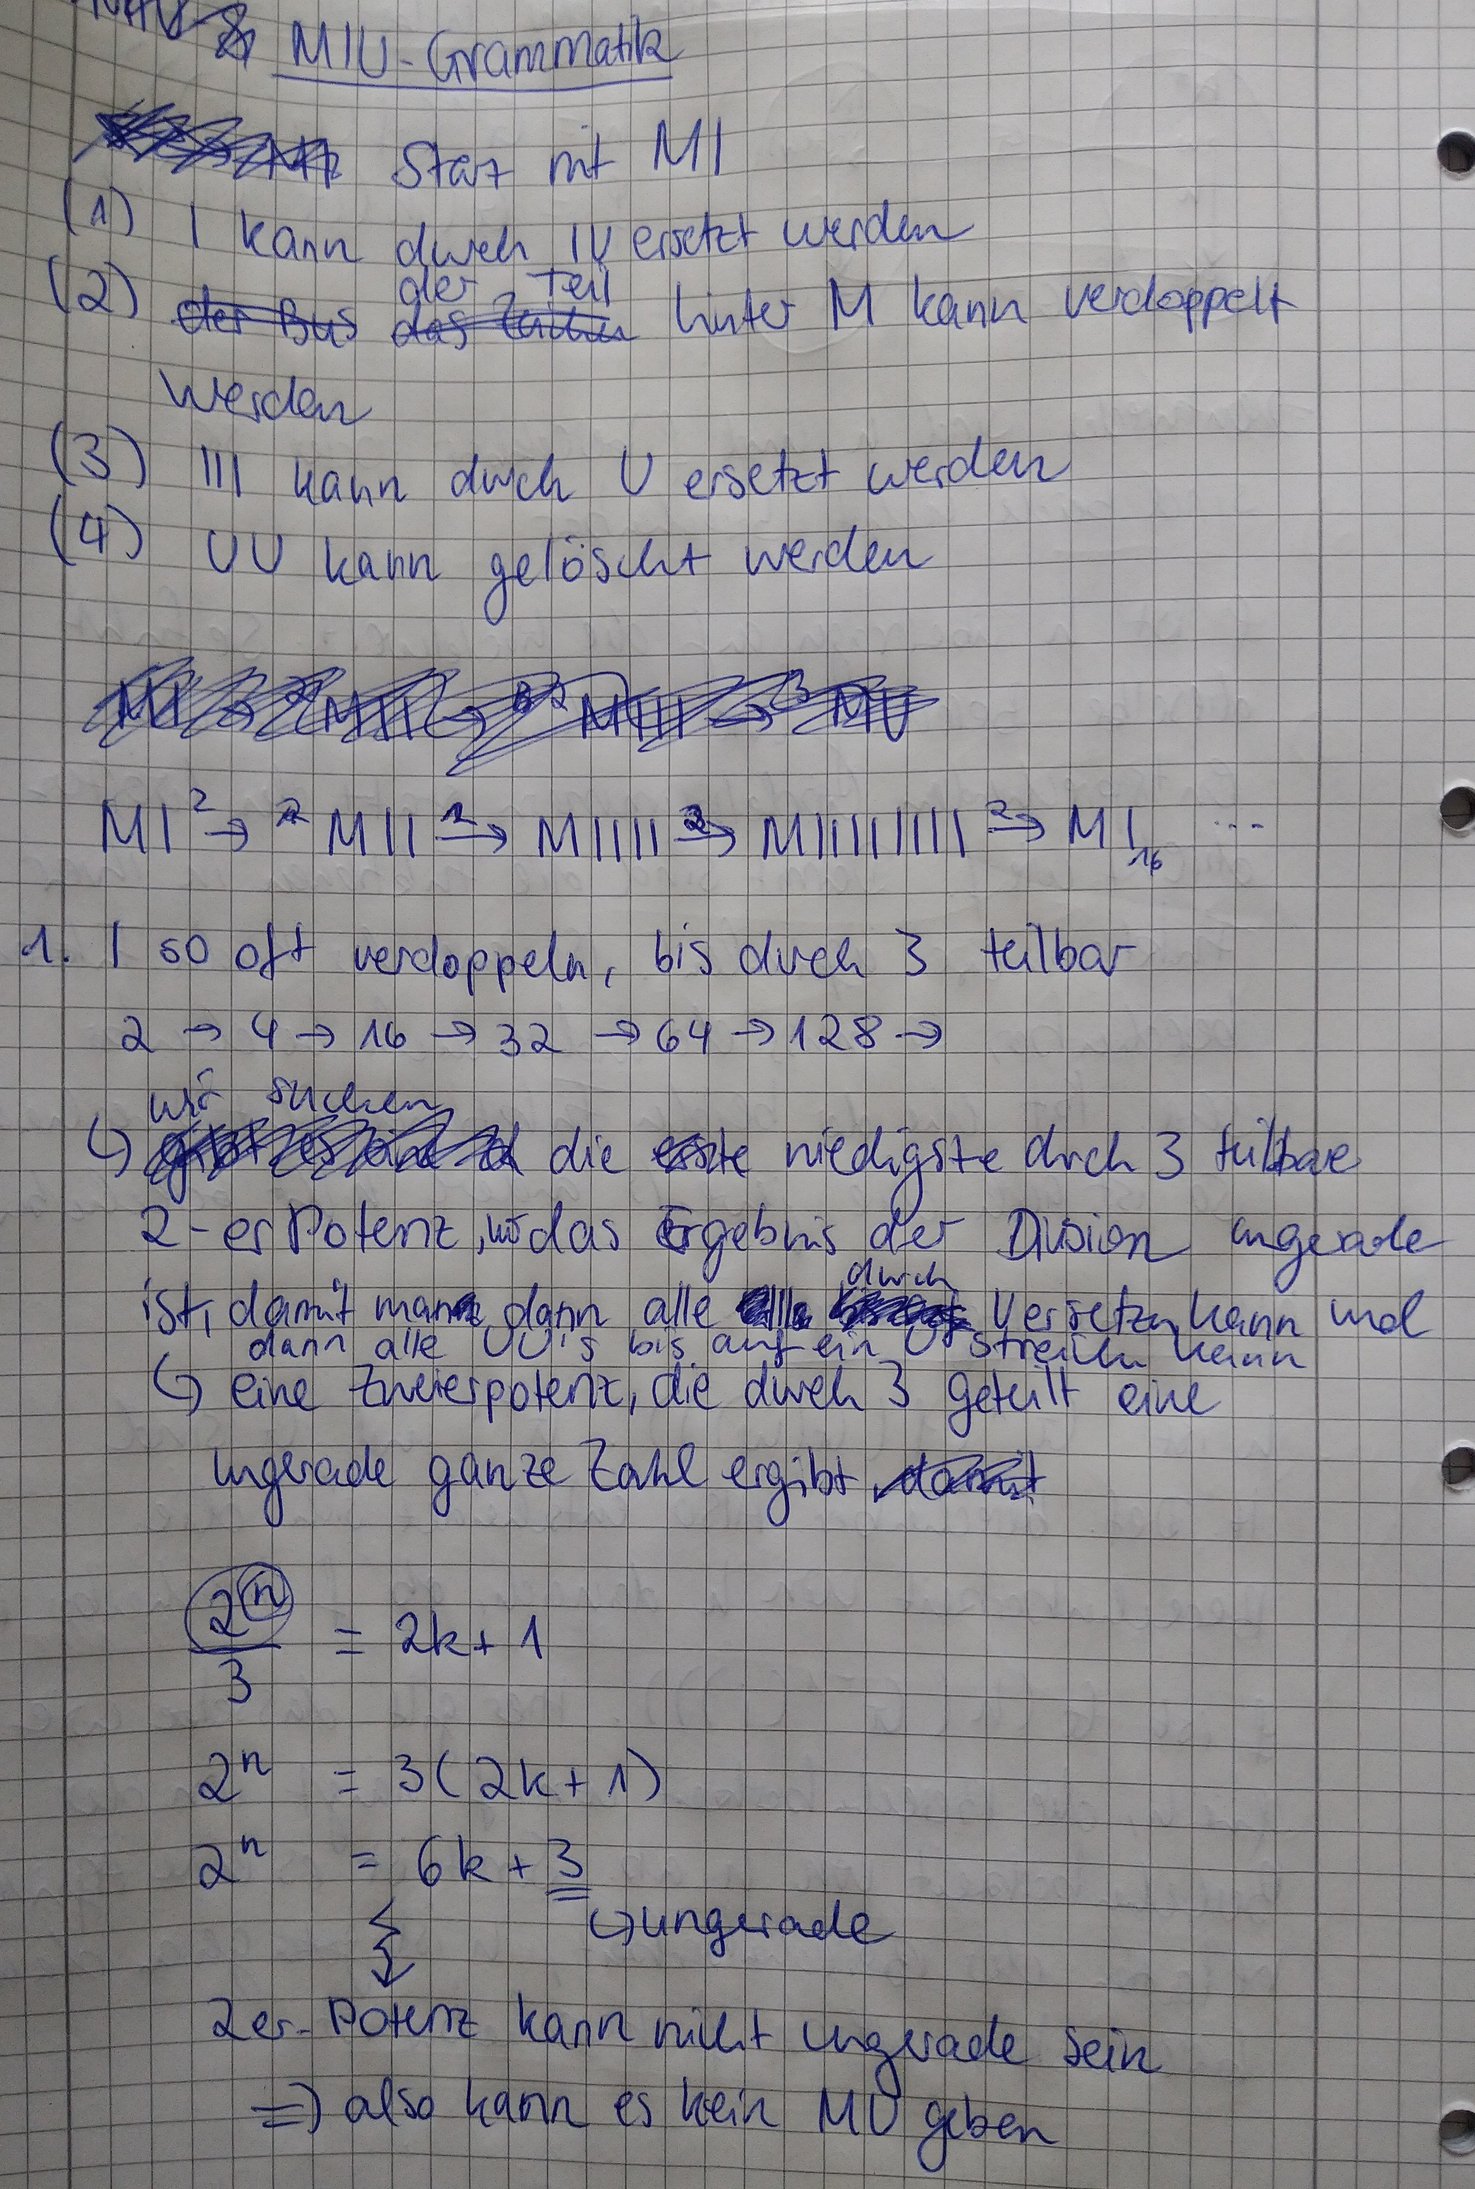 MIU-Grammatik
Start mit MI
(1) I kann durch IU ersetzt werden
der Teil
(2) der Bus das Zeichen hinter M kann verdoppelt
werden
(3) III kann durch U ersetzt werden
(4) UU kann gelöscht werden
MI → 2 MII → MIII → 3 MU
MI 2→ MII 2→ MIIII 2→ MIIIIIIII 2→ MI16 ...
1. I so oft verdoppeln, bis durch 3 teilbar
2 → 4 → 16 → 32 → 64 → 128 →
wir suchen
↳ die erste niedigste durch 3 teilbare
2-er Potenz, wo das Ergebnis der Division ungerade
durch
ist, damit man dann alle U ersetzen kann und
dann alle UU's bis auf ein U streichen kann
↳ eine Zweierpotenz, die durch 3 geteilt eine
ungerade ganze Zahl ergibt, damit
2^n / 3 = 2k + 1
2^n = 3(2k + 1)
2^n = 6k + 3
↳ ungerade
2er-Potenz kann nicht ungerade sein
⇒ also kann es kein MU geben